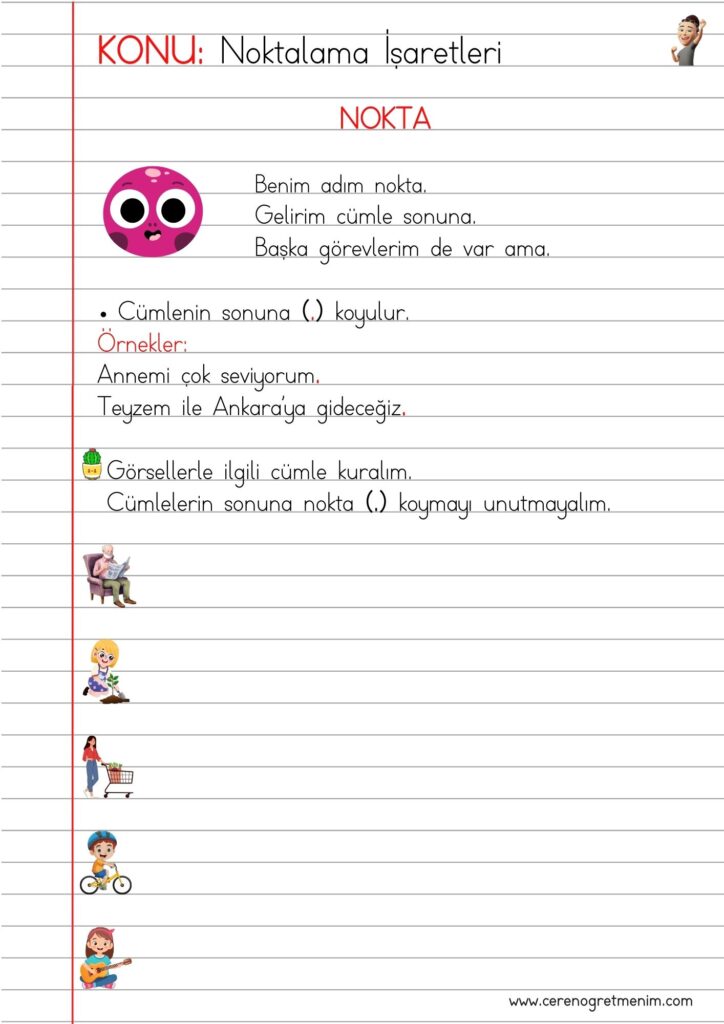 KONU: Noktalama İşaretleri
NOKTA
Benim adım nokta.
Gelirim cümle sonuna.
Başka görevlerim de var ama.
• Cümlenin sonuna (.) koyulur.
Örnekler:
Annemi çok seviyorum.
Teyzem ile Ankara'ya gideceğiz.
Görsellerle ilgili cümle kuralım.
Cümlelerin sonuna nokta (.) koymayı unutmayalım.
www.cerenogretmenim.com